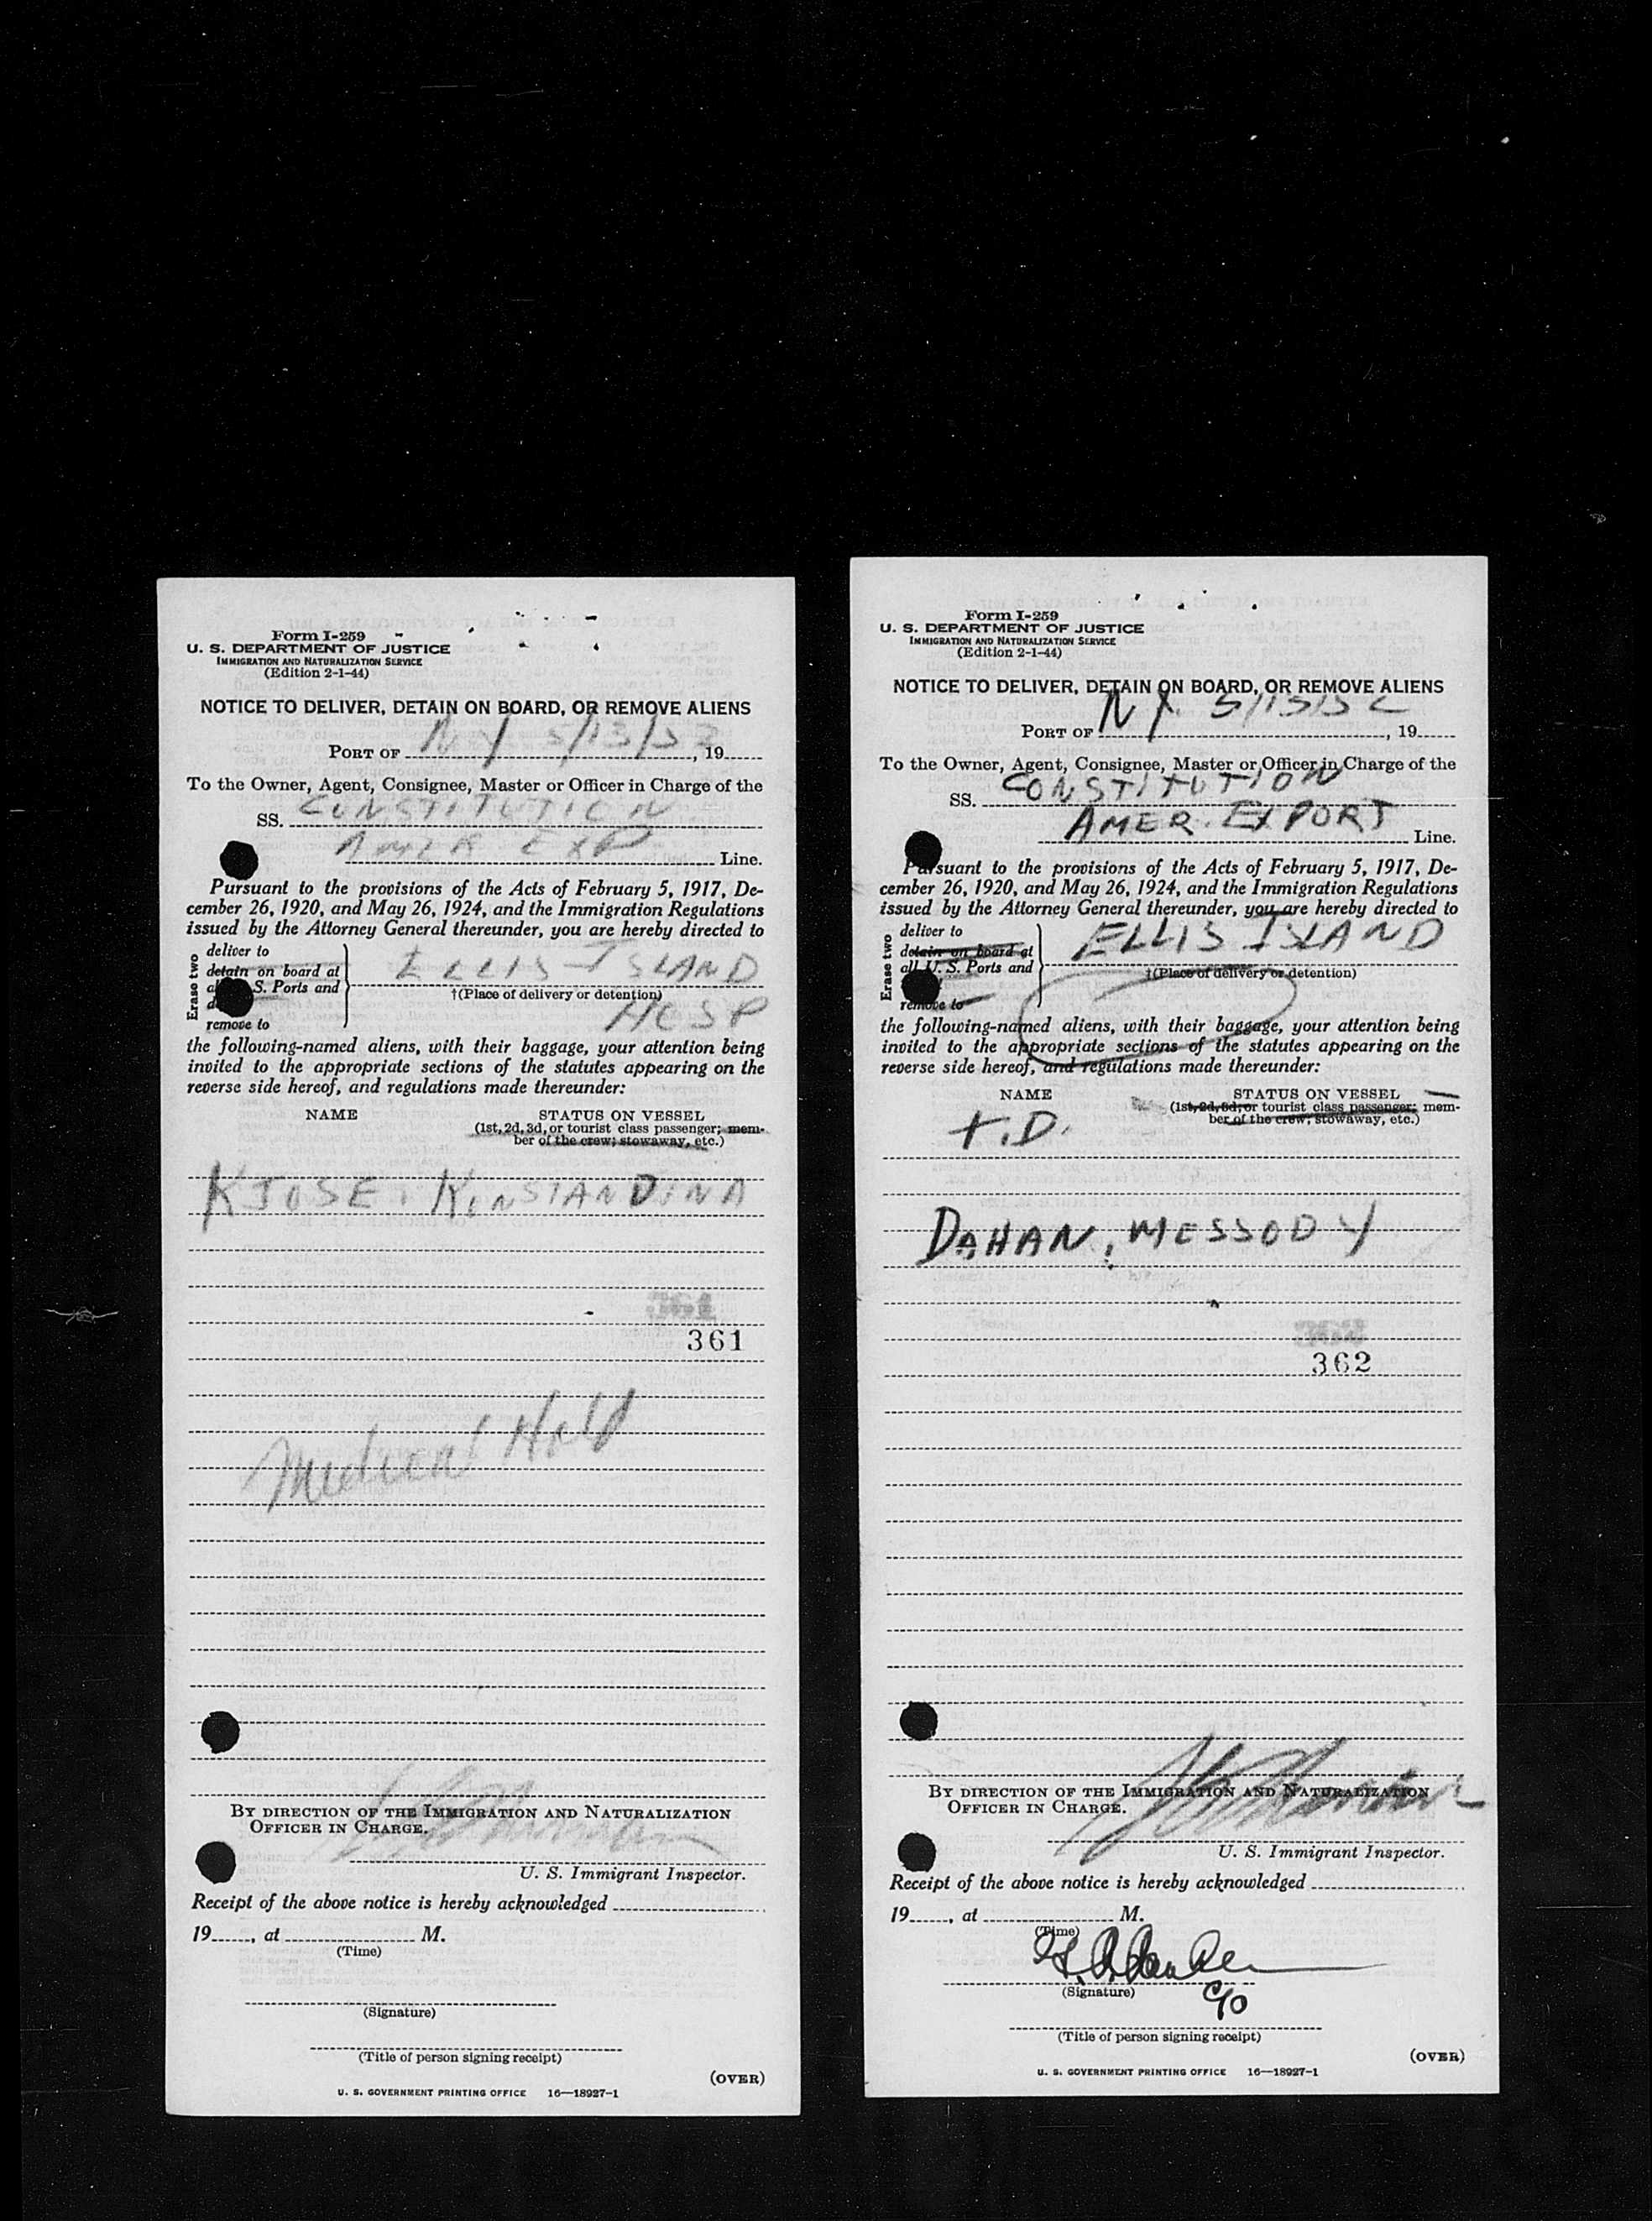 Form I-259
U. S. DEPARTMENT OF JUSTICE
IMMIGRATION AND NATURALIZATION SERVICE
(Edition 2-1-44)
NOTICE TO DELIVER, DETAIN ON BOARD, OR REMOVE ALIENS
PORT OF N Y 5/13/52, 19
To the Owner, Agent, Consignee, Master or Officer in Charge of the
SS. CONSTITUTION
AMER EXP Line.
Pursuant to the provisions of the Acts of February 5, 1917, De-
cember 26, 1920, and May 26, 1924, and the Immigration Regulations
issued by the Attorney General thereunder, you are hereby directed to
Erase two
deliver to
detain on board at
S. Ports and
remove to
ELLIS ISLAND
†(Place of delivery or detention)
HOSP
the following-named aliens, with their baggage, your attention being
invited to the appropriate sections of the statutes appearing on the
reverse side hereof, and regulations made thereunder:
NAME STATUS ON VESSEL
(1st, 2d, 3d, or tourist class passenger; mem-
ber of the crew; stowaway, etc.)
KJOSE, KONSTANDINA
361
361
Medical Hold
BY DIRECTION OF THE IMMIGRATION AND NATURALIZATION
OFFICER IN CHARGE.
U. S. Immigrant Inspector.
Receipt of the above notice is hereby acknowledged
19, at M.
(Time)
(Signature)
(Title of person signing receipt)
(OVER)
U. S. GOVERNMENT PRINTING OFFICE 16—18927-1
Form I-259
U. S. DEPARTMENT OF JUSTICE
IMMIGRATION AND NATURALIZATION SERVICE
(Edition 2-1-44)
NOTICE TO DELIVER, DETAIN ON BOARD, OR REMOVE ALIENS
PORT OF N Y. 5/13/52, 19
To the Owner, Agent, Consignee, Master or Officer in Charge of the
SS. CONSTITUTION
AMER. EXPORT Line.
Pursuant to the provisions of the Acts of February 5, 1917, De-
cember 26, 1920, and May 26, 1924, and the Immigration Regulations
issued by the Attorney General thereunder, you are hereby directed to
Erase two
deliver to
detain on board at
all U. S. Ports and
remove to
ELLIS ISLAND
†(Place of delivery or detention)
the following-named aliens, with their baggage, your attention being
invited to the appropriate sections of the statutes appearing on the
reverse side hereof, and regulations made thereunder:
NAME STATUS ON VESSEL
(1st, 2d, 3d, or tourist class passenger; mem-
ber of the crew; stowaway, etc.)
T.D.
DAHAN, MESSODY
362
362
BY DIRECTION OF THE IMMIGRATION AND NATURALIZATION
OFFICER IN CHARGE.
U. S. Immigrant Inspector.
Receipt of the above notice is hereby acknowledged
19, at M.
(Time)
(Signature)
(Title of person signing receipt)
(OVER)
U. S. GOVERNMENT PRINTING OFFICE 16—18927-1